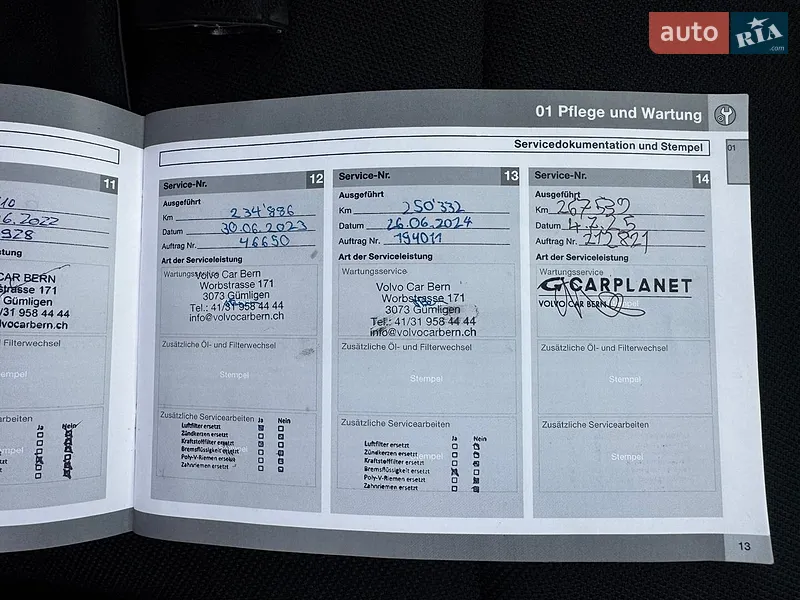 auto RIA .com
01 Pflege und Wartung
Servicedokumentation und Stempel
01
11
2022
CAR BERN
Worbstrasse 171
Gümligen
/31 958 44 44
volvocarbern.ch
Filterwechsel
Stempel
arbeiten
Ja Nein
Service-Nr. 12
Ausgeführt
Km 234'886
Datum 30.06.2023
Auftrag Nr. 46650
Art der Serviceleistung
Wartungsservice
Volvo Car Bern
Worbstrasse 171
3073 Gümligen
Tel.: 41/31 958 44 44
info@volvocarbern.ch
Zusätzliche Öl- und Filterwechsel
Stempel
Zusätzliche Servicearbeiten
Ja Nein
Luftfilter ersetzt
Zündkerzen ersetzt
Kraftstoffilter ersetzt
Bremsflüssigkeit ersetzt
Poly-V-Riemen ersetzt
Zahnriemen ersetzt
Service-Nr. 13
Ausgeführt
Km 250'332
Datum 26.06.2024
Auftrag Nr. 194011
Art der Serviceleistung
Wartungsservice
Volvo Car Bern
Worbstrasse 171
3073 Gümligen
Tel.: 41/31 958 44 44
info@volvocarbern.ch
Zusätzliche Öl- und Filterwechsel
Stempel
Zusätzliche Servicearbeiten
Ja Nein
Luftfilter ersetzt
Zündkerzen ersetzt
Kraftstoffilter ersetzt
Bremsflüssigkeit ersetzt
Poly-V-Riemen ersetzt
Zahnriemen ersetzt
Service-Nr. 14
Ausgeführt
Km 267539
Datum 4.7.25
Auftrag Nr. 212821
Art der Serviceleistung
Wartungsservice
CARPLANET
VOLVO CAR BERN
Zusätzliche Öl- und Filterwechsel
Stempel
Zusätzliche Servicearbeiten
Stempel
13